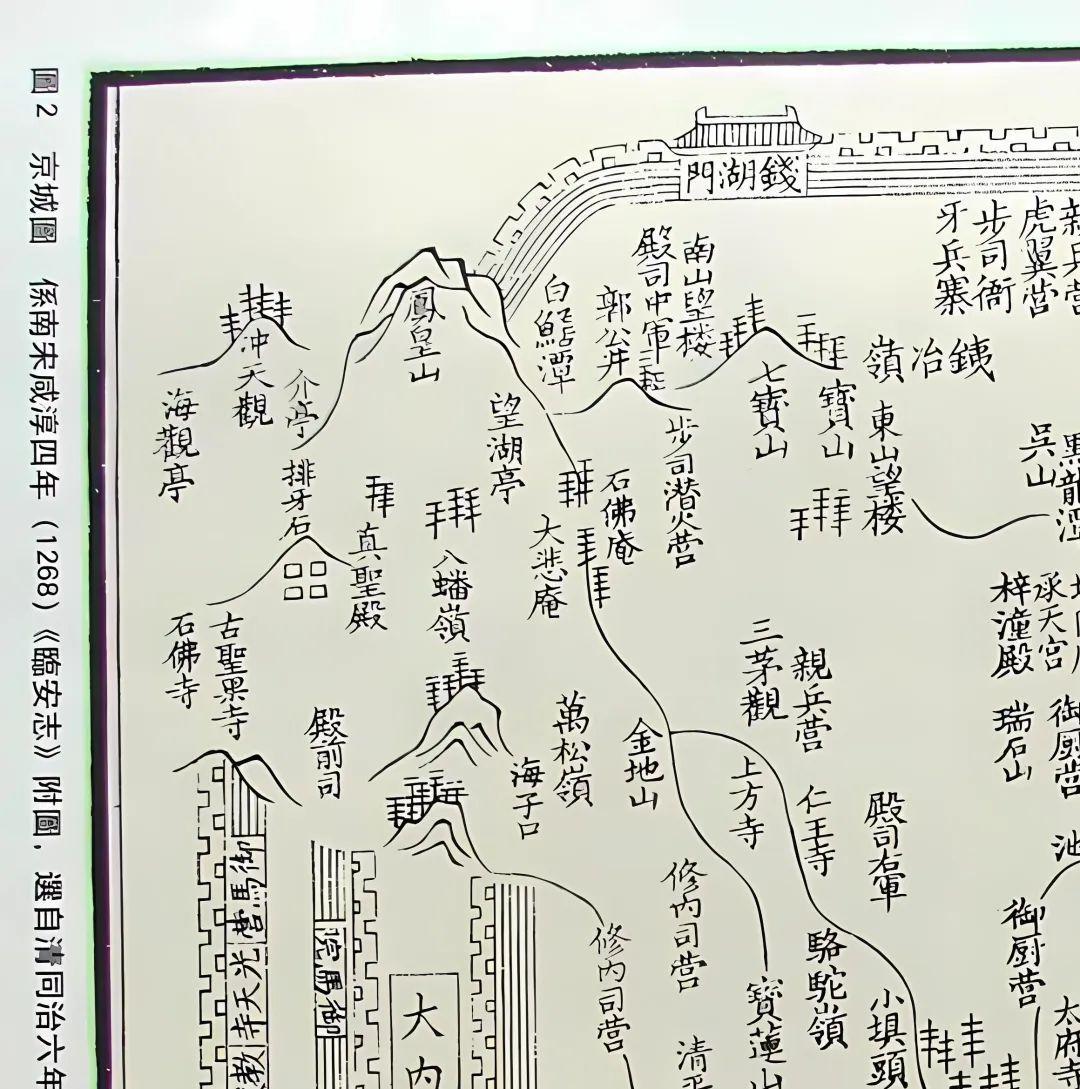 圖2 京城圖 係南宋咸淳四年（1268）《臨安志》附圖，選自清同治六年
錢湖門
牙兵寨
步司衙
虎翼营
新兵营
南山望楼
殿司中軍
郭公井
白鮎潭
鳳皇山
冲天觀
介亭
海觀亭
排牙石
望湖亭
七寶山
寶山
鐵冶嶺
東山望楼
吳山
黑龍潭
步司潜火营
石佛庵
大悲庵
八蟠嶺
真聖殿
石佛寺
古聖果寺
殿前司
萬松嶺
海子口
金地山
三茅觀
親兵营
梓潼殿
承天宮
瑞石山
御厨营
上方寺
仁王寺
殿司右軍
池
御厨营
修内司营
修内司营
駱駝嶺
寶蓮山
小填頭
太府寺
御馬营
光天寺
教
御馬院
大内
清平